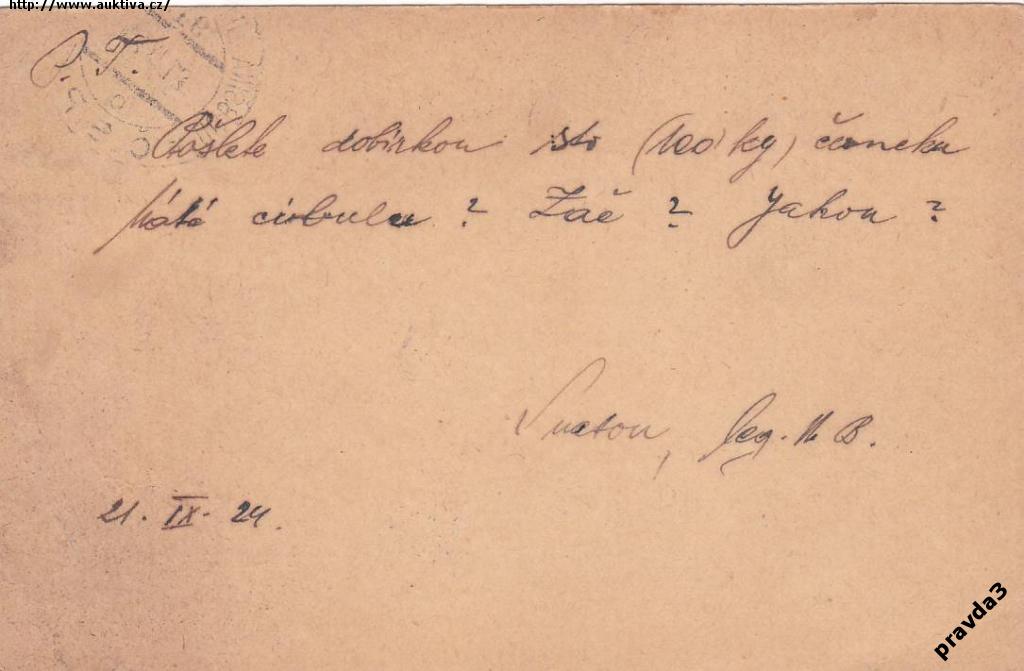 http://www.auktiva.cz/
P. T.
Pošlete dobírkou sto (100 kg) česneku
Máte cibulu ? Zač ? Jakou ?
leg. M B.
21. IX. 24.
pravda3